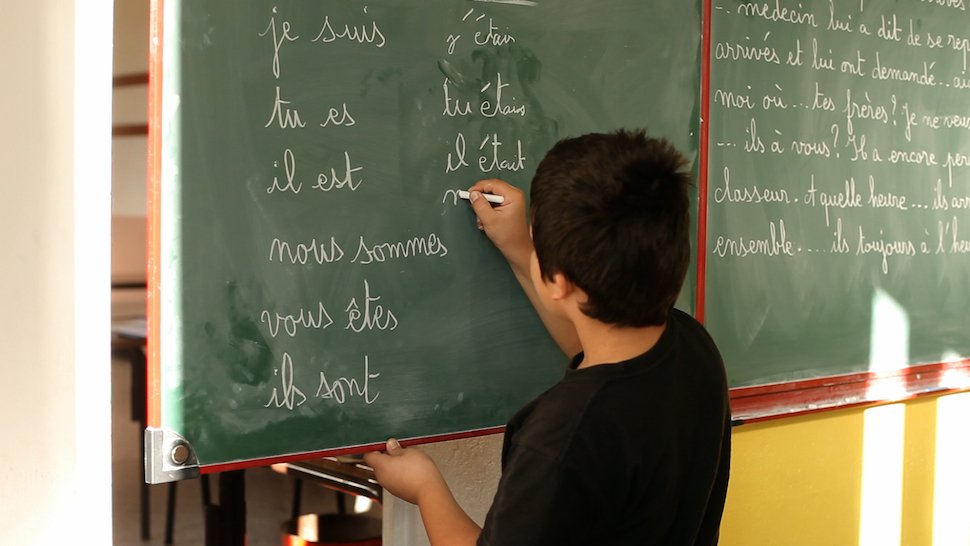 je suis
tu es
il est
nous sommes
vous êtes
ils sont
j'étais
tu étais
il était
n
... médecin lui a dit de se rep
arrivés et lui ont demandé...
moi où... tes frères? Je ne veu
... ils à vous? Il a encore per
classeur. A quelle heure... ils arr
ensemble.... ils toujours à l'heu